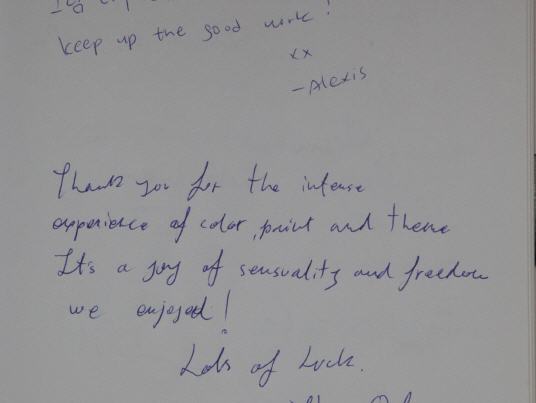 keep up the good work!
xx
- Alexis
Thank you for the intense
experience of color, paint and theme
It's a joy of sensuality and freedom
we enjoyed!
Lots of Luck.